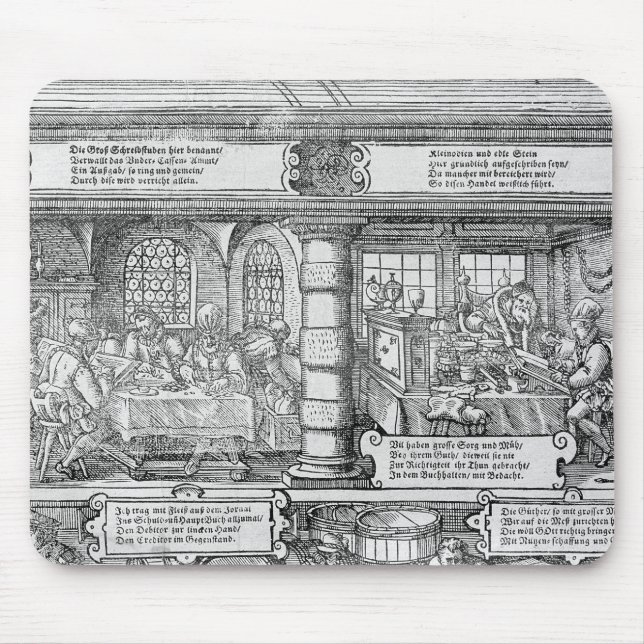 Die Groß Schreibstuben hier benannt/
Verwalt das Under-Cassen-Ammt/
Ein Außgab/ so ring und gemein/
Durch dise wird verricht allein.
Kleinodien und edle Stein
Hier gründlich aufgeschriben seyn/
Da mancher mit bereichert wird/
So disen Handel weißlich führt.
Vil haben grosse Sorg und Müh/
Bey ihrem Guth/ dieweil sie nie
Zur Richtigkeit ihr Thun gebracht/
In dem Buchhalten/ mit Bedacht.
Ich trag mit Fleiß auß dem Jornal
Ins Schuld- uñ Haupt Buch allzumal/
Den Debitor zur lincken Hand/
Den Creditor im Gegenstand.
Die Güther/ so mit grosser M
Wir auf die Meß zurichten h
Die wöll GOtt richtig bringen
Mit Nutzen-schaffung und